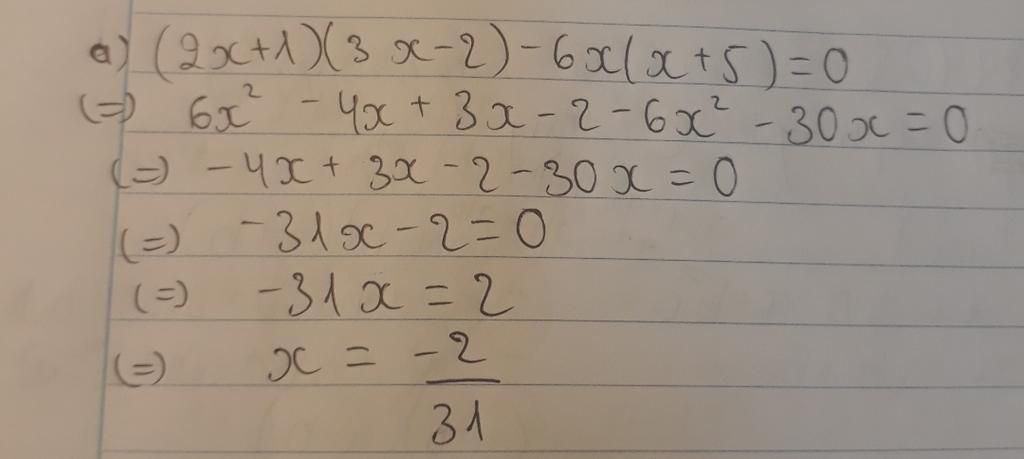 a) (2x+1)(3x-2)-6x(x+5)=0
(=) 6x² - 4x + 3x - 2 - 6x² - 30x = 0
(=) -4x + 3x - 2 - 30x = 0
(=) -31x - 2 = 0
(=) -31x = 2
(=) x = -2/31